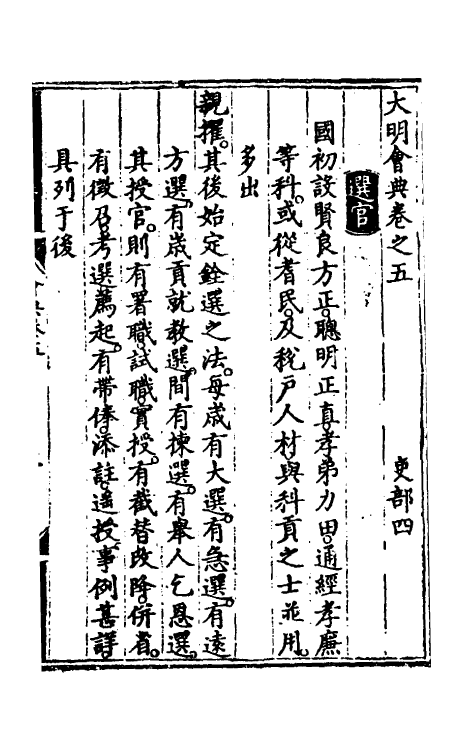 大明會典卷之五
吏部四
選官
國初設賢良方正。聰明正直。孝弟力田。通經孝廉
等科。或從耆民。及稅戶人材。與科貢之士並用。
多出
親擢。其後始定銓選之法。每歲有大選。有急選。有遠
方選。有歲貢就教選。間有揀選。有舉人乞恩選。
其授官。則有署職。試職。實授。有截替改降。併省。
有徵召。考選薦起。有帶俸。添註。遙授。事例甚詳。
具列于後